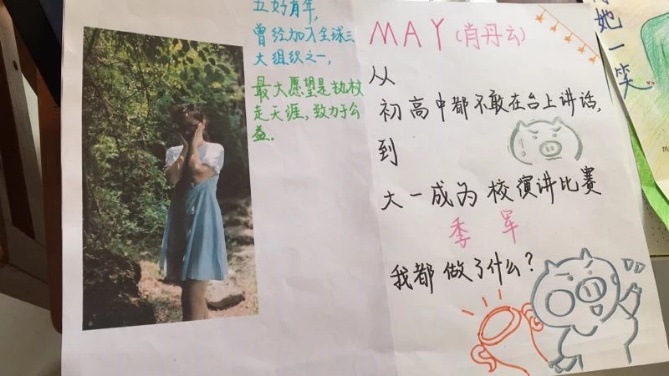 五好青年,
曾经加入全球三
大组织之一,
最大愿望是执杖
走天涯,致力于公
益.
MAY(肖丹云)
从
初高中都不敢在台上讲话,
到
大一成为校演讲比赛
季军
我都做了什么?
她一笑